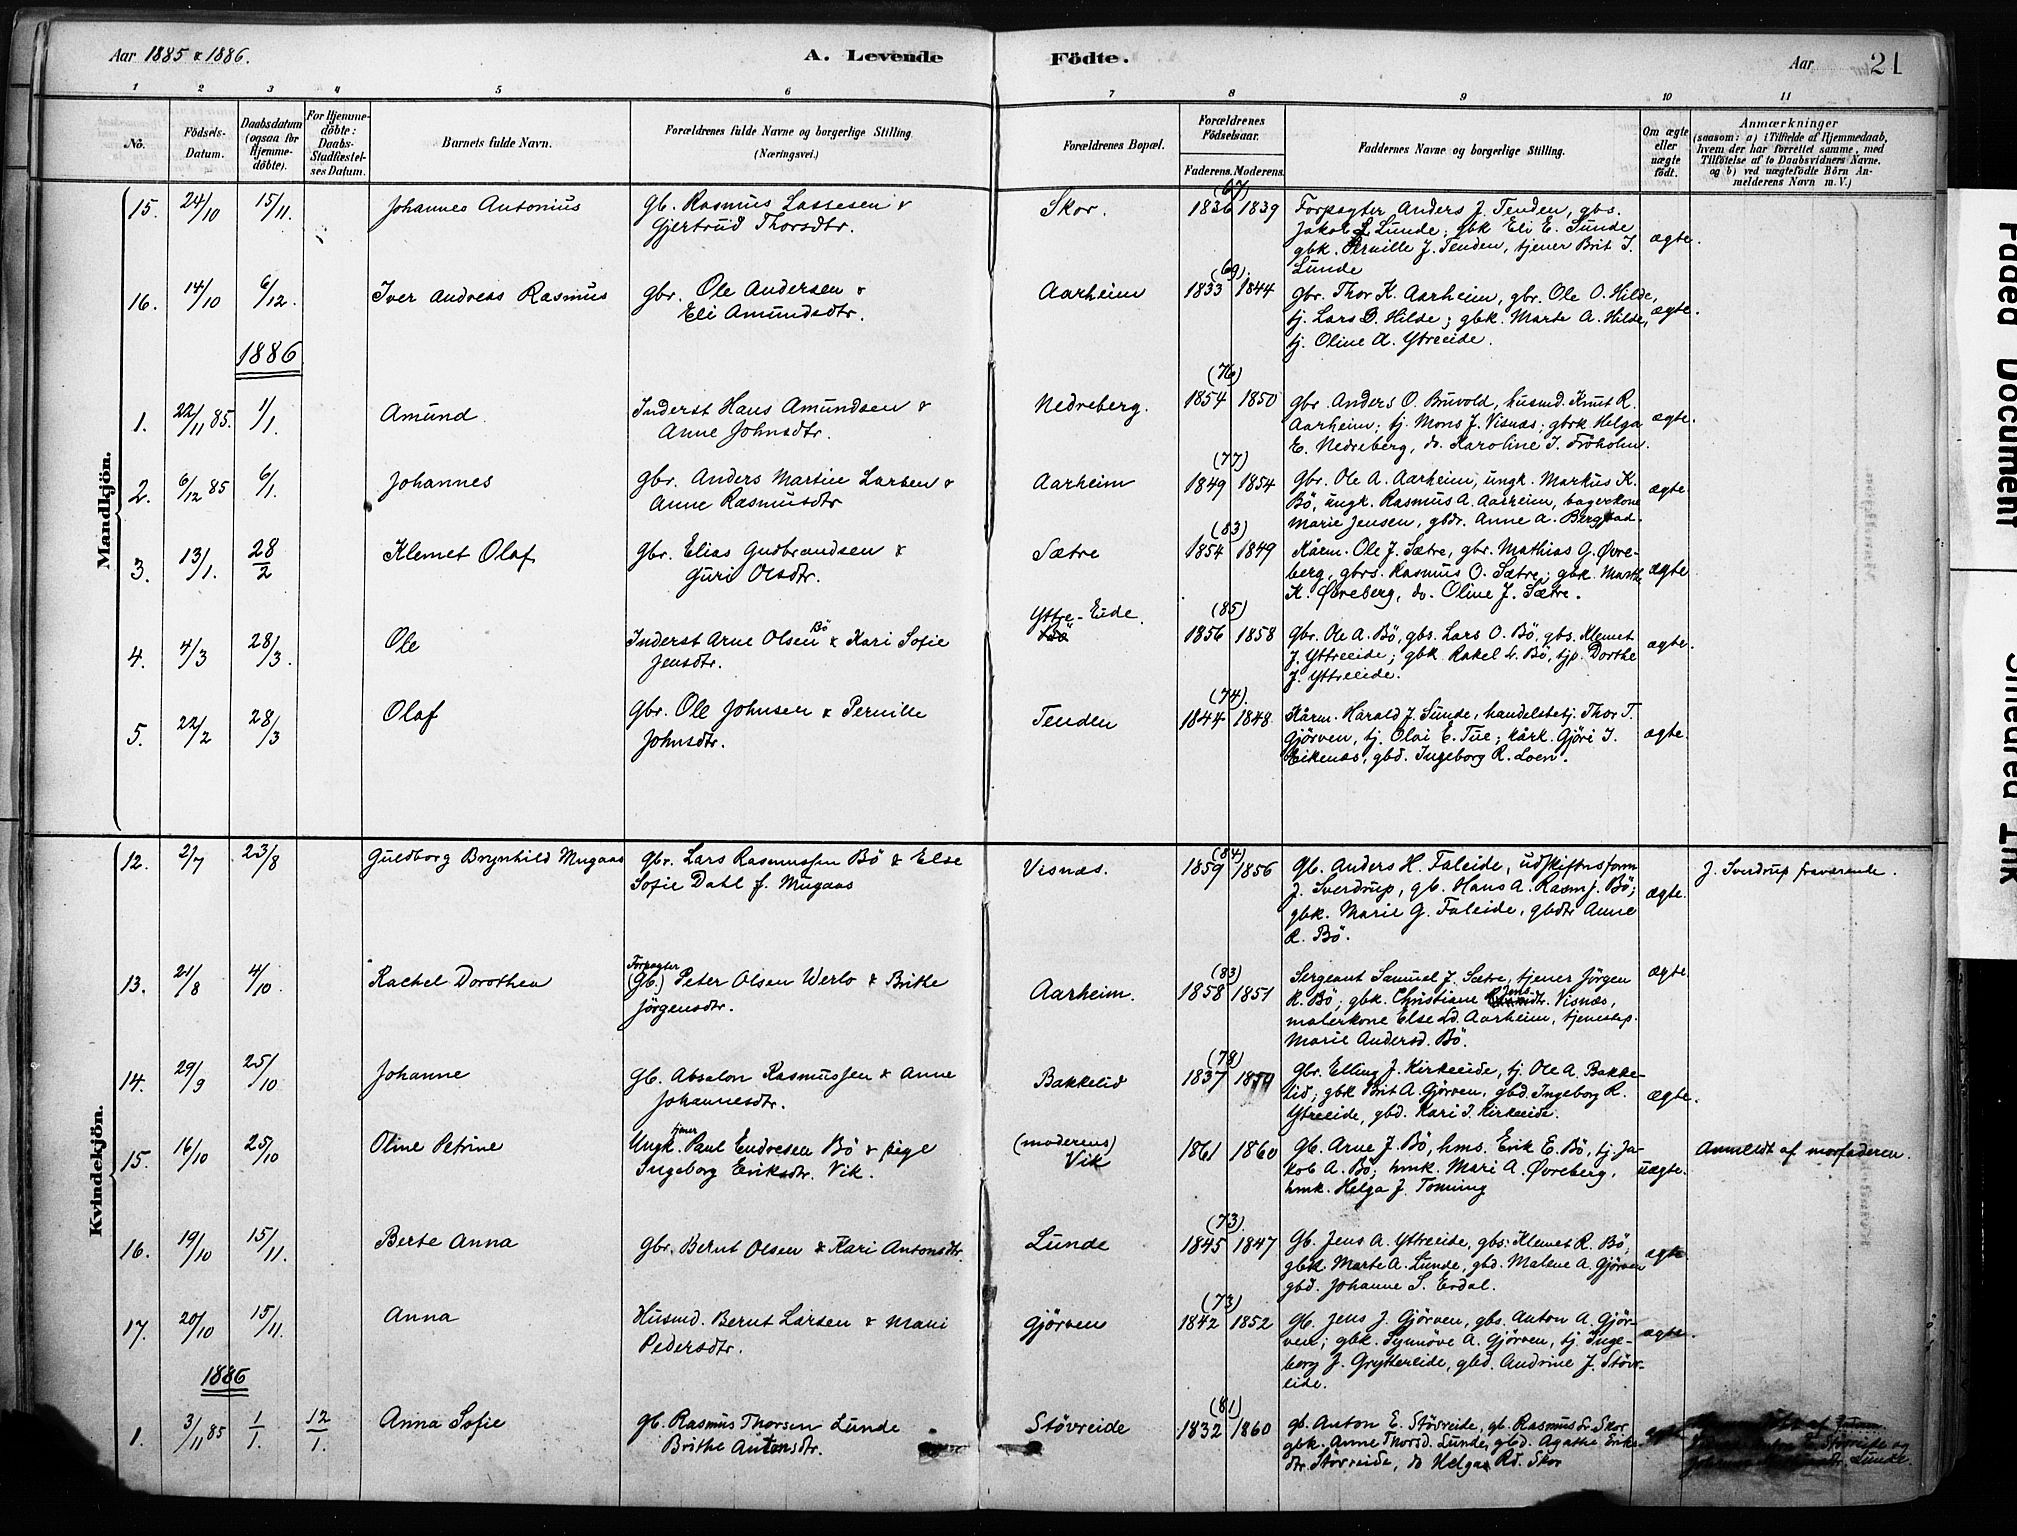 Aar 1885 & 1886.
A. Levende Födte.
Aar 21
1 2 3 4 5 6 7 8 9 10 11
No.
Födsels-Datum.
Daabsdatum (ogsaa for Hjemme-döbte).
For Hjemme-döbte: Daabs-Stadfæstel-ses Datum.
Barnets fulde Navn.
Forældrenes fulde Navne og borgerlige Stilling. (Næringsvei.)
Forældrenes Bopæl.
Forældrenes Födselsaar. Faderens. Moderens.
Faddernes Navne og borgerlige Stilling.
Om ægte eller uægte födt.
Anmærkninger
(saasom: a) i Tilfælde af Hjemmedaab, hvem der har forrettet samme, med Tilföielse af to Daabsvidners Navne, og b) ved uægtefödte Börn An-melderens Navn m. V.)
Mandkjön.
15. 24/10 15/11. Johannes Antonius
gb. Rasmus Lassesen &
Gjertrud Thorsdtr.
Skor. (67) 1836 1839
Forpagter Anders J. Tenden, gbs.
Jakob L. Lunde; gbk Eli E. Lunde
gbk. Pernille J. Tenden, tjener Brit J.
Lunde
ægte.
16. 14/10 6/12. Iver Andreas Rasmus
gbr. Ole Andersen &
Eli Amundsdtr.
Aarheim (69) 1833 1844
Gbr. Thor K. Aarheim, gbr. Ole O. Hilde,
tj. Lars D. Hilde; gbk. Marte A. Hilde,
tj. Oline A. Ytreeide.
ægte.
1886
1. 22/11 85. 1/1. Amund.
Inderst Hans Amundsen &
Anne Johnsdtr.
Nedreberg. (76) 1854 1850
gbr. Anders O. Bruvold, husmd. Knut R.
Aarheim; tj. Mons J. Visnæs; gbrk Helga
E. Nedreberg, do. Karoline J. Fröholm.
ægte.
2. 6/12 85 6/1. Johannes
gbr. Anders Martin Larsen &
Anne Rasmusdtr
Aarheim (77) 1849 1854
Gbr. Ole A. Aarheim, ungk. Markus K.
Bö, ungk. Rasmus A. Aarheim, bagerkone
Marie Jensen, gbdr. Anne A. Bergstad.
ægte
3. 13/1. 28/2 Klemet Olaf
Gbr. Elias Gudbrandsen &
Guri Olsdtr.
Sætre (83) 1854 1849
Kårm. Ole J. Sætre, gbr. Mathias G. Øvre-
berg, gbrs. Rasmus O. Sætre; gbk. Marthe
K. Øvreberg, do. Oline J. Sætre.
ægte
4. 4/3 28/3. Ole
Inderst Arne Olsen Bö & Kari Sofie
Jensdtr.
Yttre-Eide. (85) 1856 1858
Gbr. Ole A. Bö, gbs. Lars O. Bö, gbs. Klemet
J. Yttreeide; gbk. Rakel L. Bö, tjp. Dorthe
J. Yttreeide.
ægte.
5. 22/2 28/3 Olaf
Gbr. Ole Johnsen & Pernille
Johnsdtr.
Tenden (74) 1844 1848.
Kårm. Harald J. Sunde, handelsbetj. Thor T.
Gjörven, tj. Olai E. Tue; kårk. Gjöri I.
Eikenæs, gbd. Ingeborg R. Loen.
ægte.
Kvindekjön.
12. 2/7 23/8 Guldborg Brynhild Mugaas
Gbr. Lars Rasmussen Bö & Else
Sofie Dahl f. Mugaas
Visnæs. (84) 1859 1856
Gb. Anders H. Faleide, udskiftnsform
J. Sverdrup, gb. Hans A. Rasmf. Bö;
gbk. Marie G. Faleide, gbdtr Anne
R. Bö.
ægte.
J. Sverdrup fraværende.
13. 21/8 4/10. Rachel Dorothea
Forpagter
(Gb.) Peter Olsen Werlo & Brithe
Jörgensdtr.
Aarheim. (83) 1858 1851
Sergeant Samuel J. Sætre, tjener Jörgen
R. Bö; gbk. Christiane Jensdtr. Visnæs,
malerkone Else Ld. Aarheim, tjenestep.
Marie Andersd. Bö.
ægte
14. 29/9 25/10 Johanne
Gb. Absalon Rasmussen & Anne
Johannesdtr.
Bakkelid (78) 1837
Gbr. Elling J. Kirkeeide, tj. Ole A. Bakke-
lid; gbk Brit A. Gjörven, gbd. Ingeborg R.
Ytreeide, gbd. Kari J. Kirkeeide.
ægte.
15. 16/10 25/10 Oline Petrine
Ungk. tjener Paul Endresen Bö & pige
Ingeborg Eriksdtr. Vik.
(moderens)
Vik 1861 1860
Gb. Arne J. Bö, hms. Erik E. Bö, tj. Ja-
kob A. Bö; hmk. Mari A. Øvreberg,
hmk. Helga J. Toming
uægte.
Anmeldt af morfaderen.
16. 19/10 15/11. Berte Anna
Gbr. Bernt Olsen & Kari Antonsdtr.
Lunde (73). 1845 1847
Gb. Jens A. Yttreeide, gbs. Klemet R. Bö;
gbk Marte A. Lunde, gbd. Malene A. Gjörven
gbd. Johanne S. Erdal.
ægte
17. 20/10 15/11. Anna
Husmd. Bernt Larsen & Mari
Pedersdtr.
Gjörven (73) 1842 1852
Gb. Jens J. Gjörven, gbs. Anton A. Gjör-
ven; gbk. Synnöve A. Gjörven, tj. Inge-
borg J. Grytterleide, gbd. Andrine J. Stövr-
eide.
ægte.
1886
1. 3/11 85 1/1. 12/1. Anna Sofie
gb. Rasmus Thorsen Lunde
Brithe Antonsdtr.
Stövreide (81) 1832 1860
gb. Anton E. Stövreide, gb. Rasmus Skor
gbk. Anne Thorsd. Lunde, gbd. Agathe Eriks-
dtr Stövreide, do Helga Rd. Skor
ægte
Stövreide og
Lunde.
Faded Document
Smeared Ink